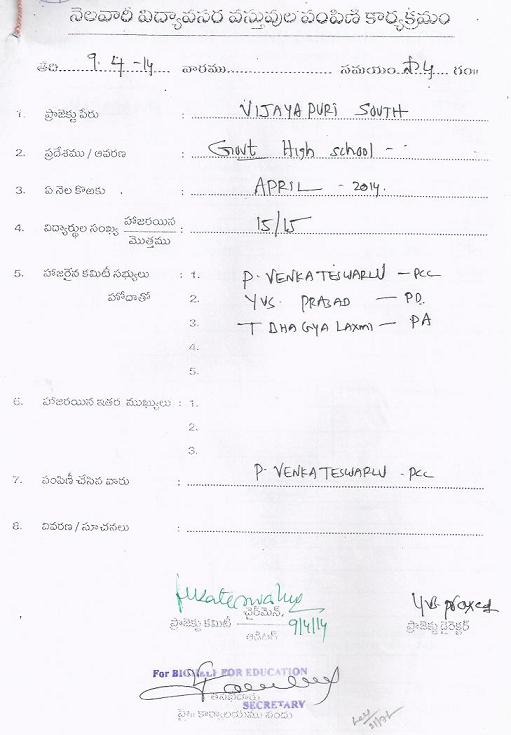 నెలవారీ విద్యావసర వస్తువుల పంపిణీ కార్యక్రమం
తేది 9-4-14 వారము సమయం గం॥
1. ప్రాజెక్టు పేరు : VIJAYAPURI SOUTH
2. ప్రదేశము / ఆవరణ : Govt High school -
3. ఏ నెల కొఱకు : APRIL - 2014.
4. విద్యార్థుల సంఖ్య హాజరయిన / మొత్తము : 15/15
5. హాజరైన కమిటీ సభ్యులు : 1. P. VENKATESWARLU - PCC
హోదాతో 2. YVS. PRASAD - PD.
3. T BHAGYA LAXMI - PA
4.
5.
6. హాజరయిన ఇతర ముఖ్యులు : 1.
2.
3.
7. పంపిణీ చేసిన వారు : P. VENKATESWARLU - PCC
8. వివరణ / సూచనలు :
ఛైర్మెన్,
ప్రాజెక్టు కమిటీ 9/4/14 ప్రాజెక్టు డైరెక్టర్
ఆడిటర్
FOR EDUCATION
SECRETARY
కార్యాలయము నందు